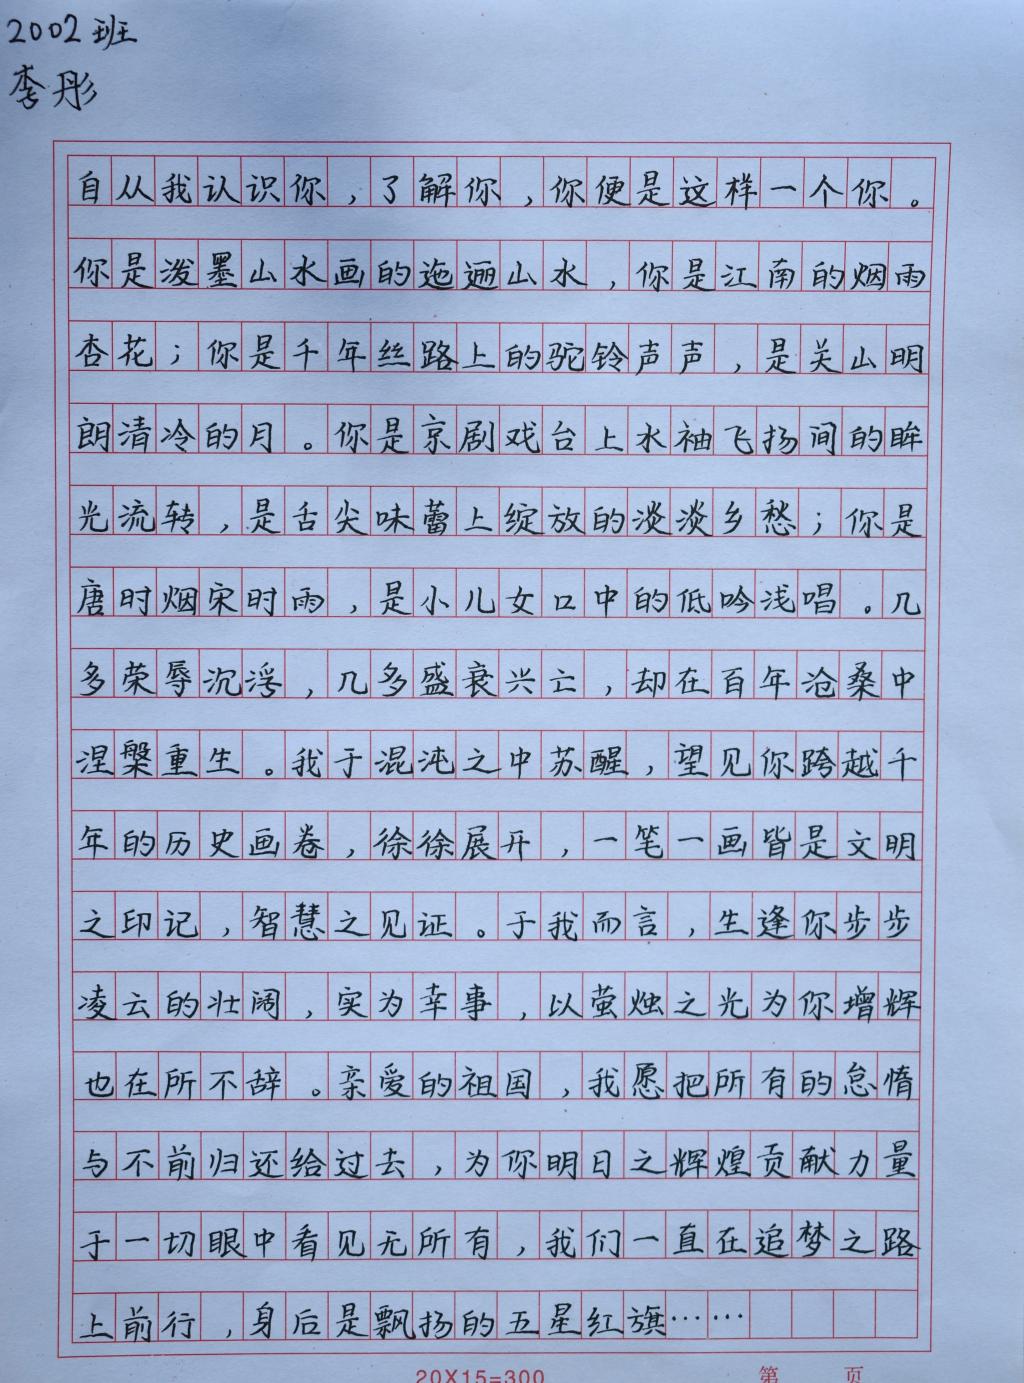 2002班
李彤
自从我认识你，了解你，你便是这样一个你。
你是泼墨山水画的迤逦山水，你是江南的烟雨
杏花；你是千年丝路上的驼铃声声，是关山明
朗清冷的月。你是京剧戏台上水袖飞扬间的眸
光流转，是舌尖味蕾上绽放的淡淡乡愁；你是
唐时烟宋时雨，是小儿女口中的低吟浅唱。几
多荣辱沉浮，几多盛衰兴亡，却在百年沧桑中
涅槃重生。我于混沌之中苏醒，望见你跨越千
年的历史画卷，徐徐展开，一笔一画皆是文明
之印记，智慧之见证。于我而言，生逢你步步
凌云的壮阔，实为幸事，以萤烛之光为你增辉
也在所不辞。亲爱的祖国，我愿把所有的怠惰
与不前归还给过去，为你明日之辉煌贡献力量
于一切眼中看见无所有，我们一直在追梦之路
上前行，身后是飘扬的五星红旗……
20X15=300 第 页